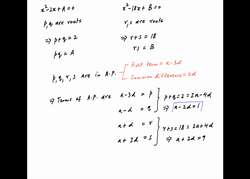 x²-2x+A=0
x²-18x+B=0
p,q are roots
r,s are roots
⇒ p+q = 2
⇒ r+s = 18
pq = A
rs = B
p,q,r,s are in A.P.
First term = a-3d
Common difference = 2d
⇒ Terms of A.P. are
a-3d = p
a-d = q
a+d = r
a+3d = s
p+q=2=2a-4d
⇒ a-2d=1
r+s=18=2a+4d
⇒ a+2d=9